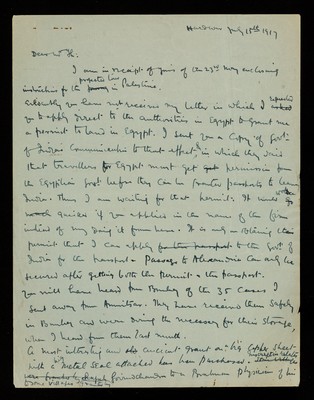 Hardwar July 18th 1917
Dear Mr H.
I am in receipt of yours of the 23rd May enclosing
instructions for the projected tour in Palestine.
Evidently you have not received my letter in which I requested
you to apply direct to the authorities in Egypt to grant me
a permit to land in Egypt. I sent you a copy of Govt
of India's communication to that effect, in which they said
that travellers for Egypt must get permission from
the Egyptian Govt before they can be granted passports to leave
India. Thus I am waiting for that permit. It would be
much quicker if you applied in the name of the firm
instead of my doing it from here. It is only on obtaining the
permit that I can apply to the Govt of
India for the passport. Passage to Alexandria can only be
secured after getting both the permit & the passport.
You will have heard from Bombay of the 35 cases I
sent away from Amritsar. They have received them safely
in Bombay and were doing the necessary for their storage,
when I heard from them last month.
A most interesting and ancient grant on a big Copper sheet
with a metal Seal attached has been purchased.
to a Brahman physician of his